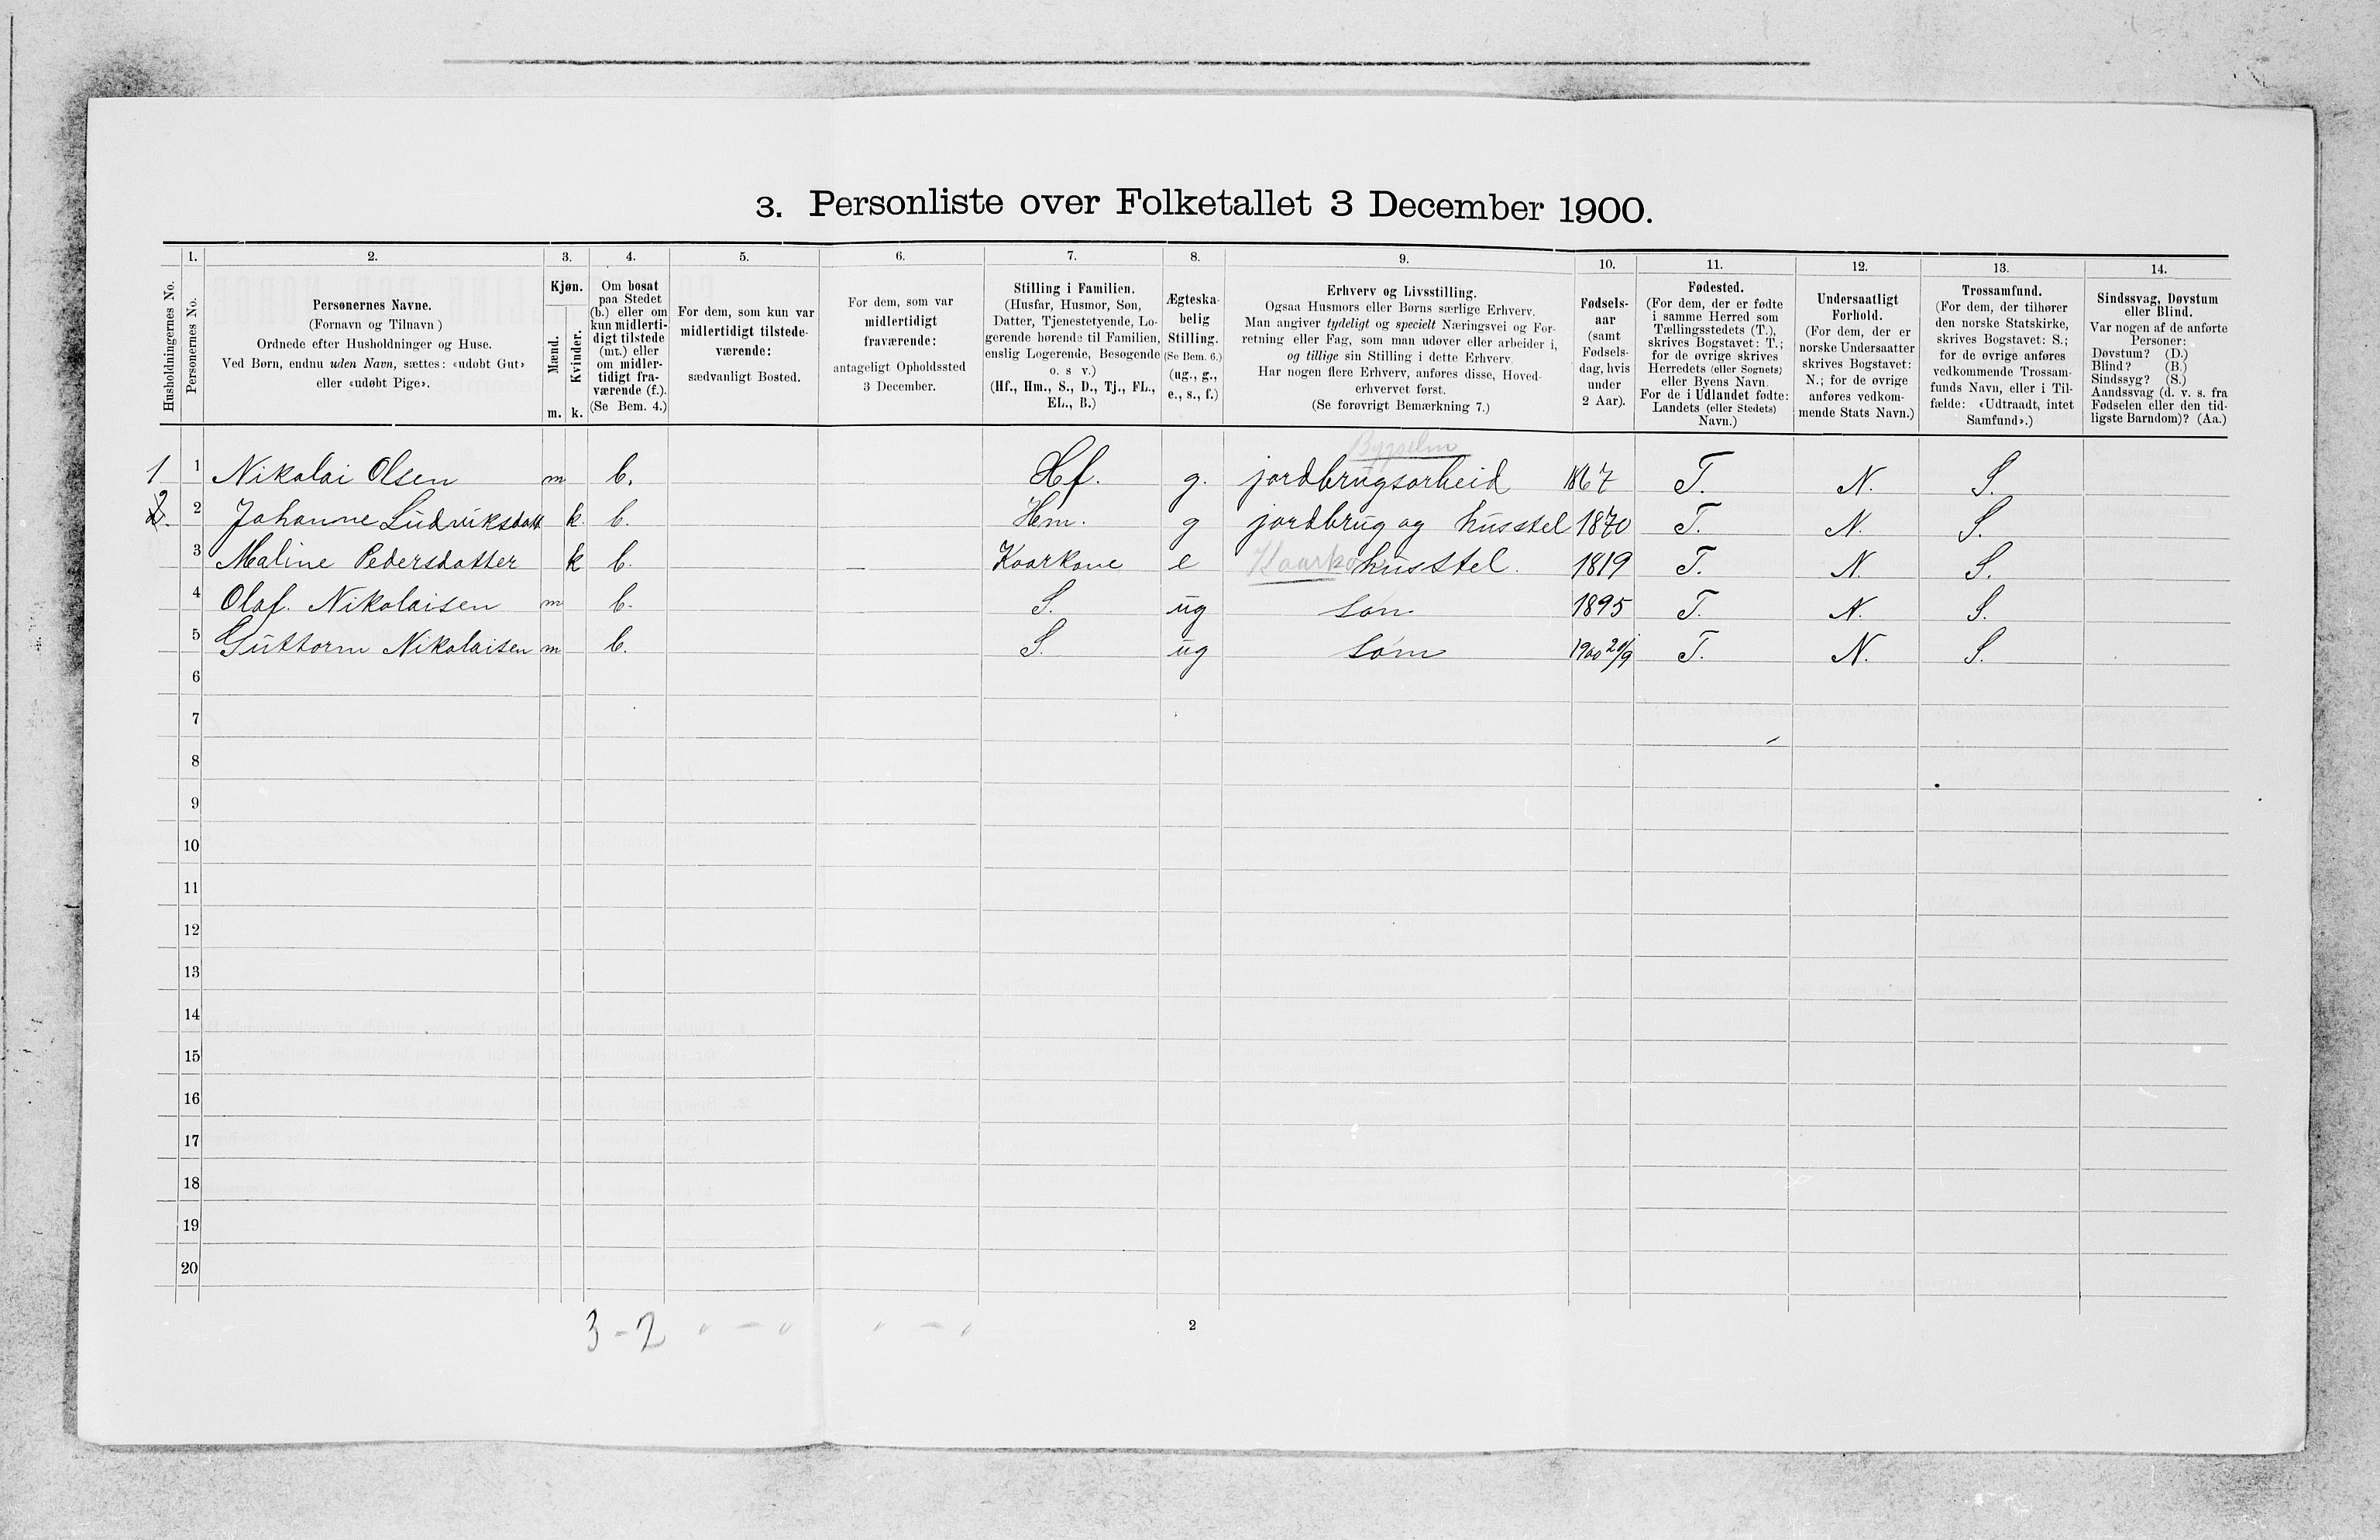 3. Personliste over Folketallet 3 December 1900.
Husholdningernes No.
1.
Personernes No.
2.
Personernes Navne.
(Fornavn og Tilnavn)
Ordnede efter Husholdninger og Huse.
Ved Børn, endnu uden Navn, sættes: «udøbt Gut»
eller «udøbt Pige».
3.
Kjøn.
Mænd.
Kvinder.
m. k.
4.
Om bosat
paa Stedet
(b.) eller om
kun midlerti-
digt tilstede
(mt.) eller
om midler-
tidigt fra-
værende (f.).
(Se Bem. 4.)
5.
For dem, som kun var
midlertidigt tilstede-
værende:
sædvanligt Bosted.
6.
For dem, som var
midlertidigt
fraværende:
antageligt Opholdssted
3 December.
7.
Stilling i Familien.
(Husfar, Husmor, Søn,
Datter, Tjenestetyende, Lo-
gerende hørende til Familien,
enslig Logerende, Besøgende
o. s v.)
(Hf., Hm., S., D., Tj., FL.,
EL., B.)
8.
Ægteska-
belig
Stilling.
(Se Bem. 6.)
(ug., g.,
e., s., f.)
9.
Erhverv og Livsstilling.
Ogsaa Husmors eller Børns særlige Erhverv.
Man angiver tydeligt og specielt Næringsvei og For-
retning eller Fag, som man udøver eller arbeider i,
og tillige sin Stilling i dette Erhverv.
Har nogen flere Erhverv, anføres disse, Hoved-
erhvervet først.
(Se forøvrigt Bemærkning 7.)
10.
Fødsels-
aar
(samt
Fødsels-
dag, hvis
under
2 Aar).
11.
Fødested.
(For dem, der er fødte
i samme Herred som
Tællingsstedets (T.),
skrives Bogstavet: T.;
for de øvrige skrives
Herredets (eller Sognets)
eller Byens Navn.
For de i Udlandet fødte:
Landets (eller Stedets)
Navn.)
12.
Undersaatligt
Forhold.
(For dem, der er
norske Undersaatter
skrives Bogstavet:
N.; for de øvrige
anføres vedkom-
mende Stats Navn.)
13.
Trossamfund.
(For dem, der tilhører
den norske Statskirke,
skrives Bogstavet: S.;
for de øvrige anføres
vedkommende Trossam-
funds Navn, eller i Til-
fælde: «Udtraadt, intet
Samfund».)
14.
Sindssvag, Døvstum
eller Blind.
Var nogen af de anførte
Personer:
Døvstum? (D.)
Blind? (B.)
Sindssyg? (S.)
Aandssvag (d. v. s. fra
Fødselen eller den tid-
ligste Barndom)? (Aa.)
1 1 Nikolai Olsen m b. Hf. g. jordbrugsarbeid 1867 T. N. S.
2. 2 Johanne Ludviksdatt k. b. Hm. g jordbrug og husstel 1870 T. N. S.
3 Maline Pedersdatter k b. — Kaarkone e Kaarko husstel. 1819 T. N. S.
4 Olaf. Nikolaisen m b. S. ug søn 1895 T. N. S.
5 Guttorm Nikolaisen m b. S. ug søm 1900 20/9 T. N. S.
6
7
8
9
10
11
12
13
14
15
16
17
18
19
20
3-2 „ — „ „ — „
2